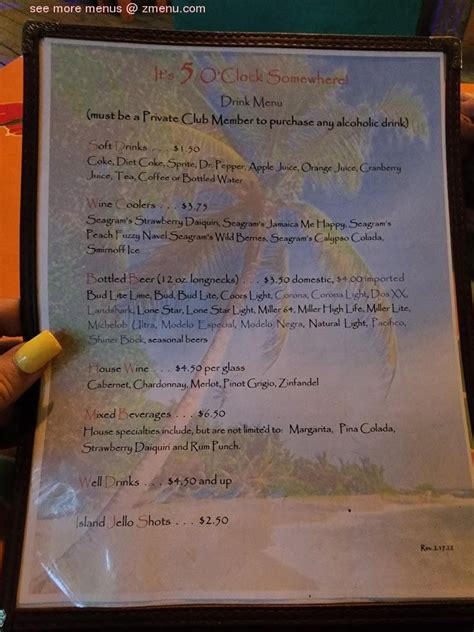 see more menus @ zmenu.com
It's 5 O'Clock Somewhere!
Drink Menu
(must be a Private Club Member to purchase any alcoholic drink)
Soft Drinks . . . $1.50
Coke, Diet Coke, Sprite, Dr. Pepper, Apple Juice, Orange Juice, Cranberry
Juice, Tea, Coffee or Bottled Water
Wine Coolers . . . $3.75
Seagram's Strawberry Daiquiri, Seagram's Jamaica Me Happy, Seagram's
Peach Fuzzy Navel Seagram's Wild Berries, Seagram's Calypso Colada,
Smirnoff Ice
Bottled Beer (12 oz. longnecks) . . . $3.50 domestic, $4.00 imported
Bud Lite Lime, Bud, Bud Lite, Coors Light, Corona, Corona Light, Dos XX,
Landshark, Lone Star, Lone Star Light, Miller 64, Miller High Life, Miller Lite,
Michelob Ultra, Modelo Especial, Modelo Negra, Natural Light, Pacifico,
Shiner Bock, seasonal beers
House Wine . . . $4.50 per glass
Cabernet, Chardonnay, Merlot, Pinot Grigio, Zinfandel
Mixed Beverages . . . $6.50
House specialties include, but are not limited to: Margarita, Pina Colada,
Strawberry Daiquiri and Rum Punch.
Well Drinks . . . $4.50 and up
Island Jello Shots . . . $2.50
Rev. 2.17.22